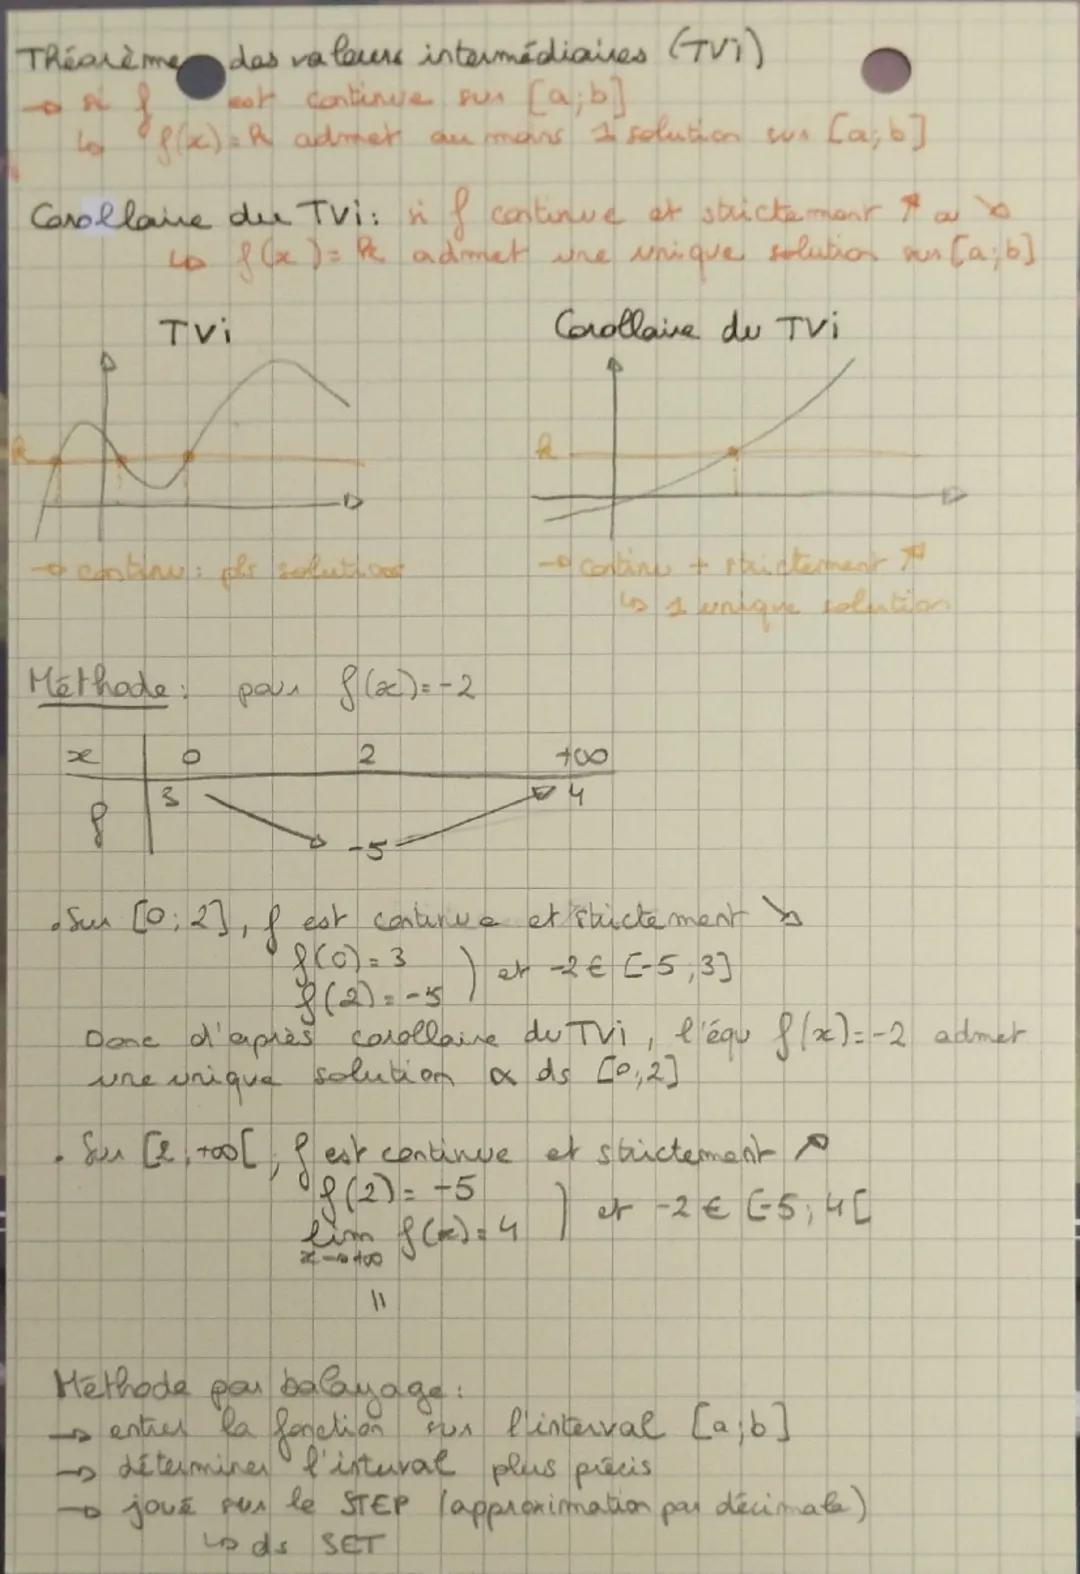 Théorème des valeurs intermédiaires (TVi)
→ si f est continue sur [a;b]
↳ f(x)=k admet au moins 1 solution sur [a;b]
Corollaire du TVi: si f continue et strictement ↗ ou ↘
↳ f(x)=k admet une unique solution sur [a;b]
TVi
Corollaire du TVi
k
k
→ continu: pls solutions
→ continu + strictement ↗
↳ 1 unique solution
Méthode: pour f(x)=-2
x 0 2 +∞
f 3 -5 4
• Sur [0;2], f est continue et strictement ↘
f(0)=3
f(2)=-5 ) et -2 ∈ [-5,3]
Donc d'après corollaire du TVi, l'équ f(x)=-2 admet
une unique solution α ds [0;2]
• Sur [2,+∞[, f est continue et strictement ↗
f(2)=-5
lim f(x)=4 ) et -2 ∈ [-5;4[
x→+∞
"
Méthode par balayage:
→ entrer la fonction sur l'interval [a;b]
→ déterminer l'interval plus précis
→ joué sur le STEP (approximation par décimale)
↳ ds SET